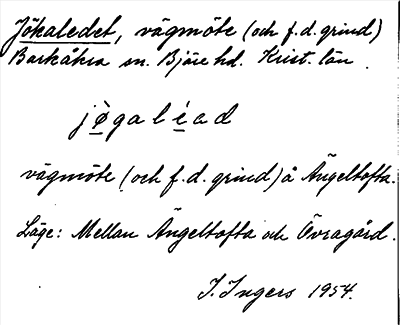 Jökaledet, vägmöte (och f.d. grind)
Barkåkra sn. Bjäre hd. Krist. län
jøgaléad
vägmöte (och f.d. grind) å Ängeltofta.
Läge: Mellan Ängeltofta och Övragård.
I. Ingers 1954.